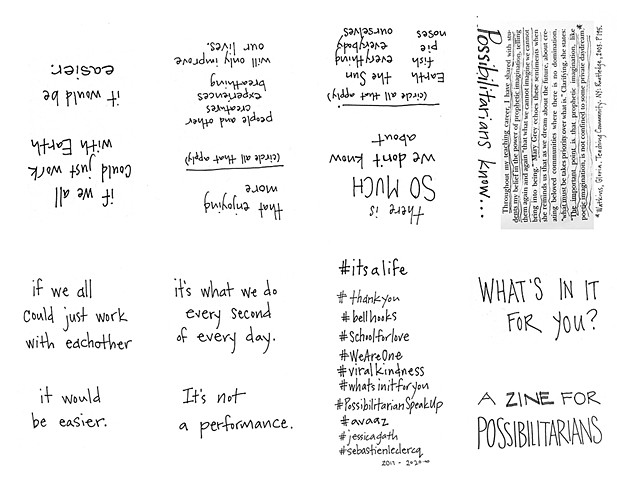 if we all
could just work
with Earth
it would be
easier.
that enjoying
more
(circle all that apply)
people and other
creatures
experiences
breathing
will only improve
our lives.
there is
SO MUCH
we don't know
about
(circle all that apply):
Earth the Sun
fish everything
pie everybody
noses ourselves
...Possibilitarians know...
Throughout my teaching career, I have shared with stu-
dents my belief in the power of prophetic imagination, telling
them again and again "that what we cannot imagine we cannot
bring into being." Mary Grey echoes these sentiments when
she reminds us that as we dream about the future, about cre-
ating beloved communities where there is no domination,
"what must be takes priority over what is." Clarifying, she states:
"The important point is that prophetic imagination, like
poetic imagination, is not confined to some private daydream,"*
*Watkins, Gloria, Teaching Community. NY: Routledge, 2003. P.195.
if we all
could just work
with eachother
it would
be easier.
it's what we do
every second
of every day.
It's not
a performance.
#itsalife
#thankyou
#bellhooks
#schoolforlove
#WeAreOne
#viralkindness
#whatsinitforyou
#PossibilitarianSpeakUp
#avaaz
#jessicagath
#sebastienleclercq
2017-2020-∞
WHAT'S IN IT
FOR YOU?
A ZINE FOR
POSSIBILITARIANS